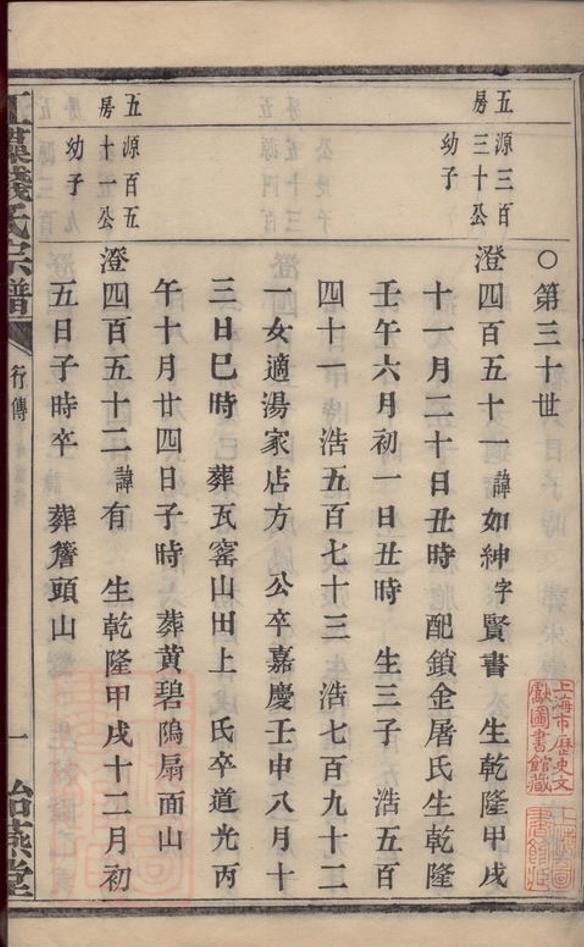 〇第三十世
五房
源三百三十公
幼子
澄四百五十一諱如紳字賢書　生乾隆甲戌
十一月二十日丑時　配鎖金屠氏生乾隆
壬午六月初一日丑時　生三子　浩五百
四十一　浩五百七十三　浩七百九十二
一女適湯家店方　公卒嘉慶壬申八月十
三日巳時　葬瓦窰山田上　氏卒道光丙
午十月廿四日子時　葬黃碧隝扇面山
五房
源百五十一公
幼子
澄四百五十二諱有　生乾隆甲戌十二月初
五日子時卒　葬簷頭山
錢氏宗譜
行傳
一
上海市歷史文
獻圖書館藏